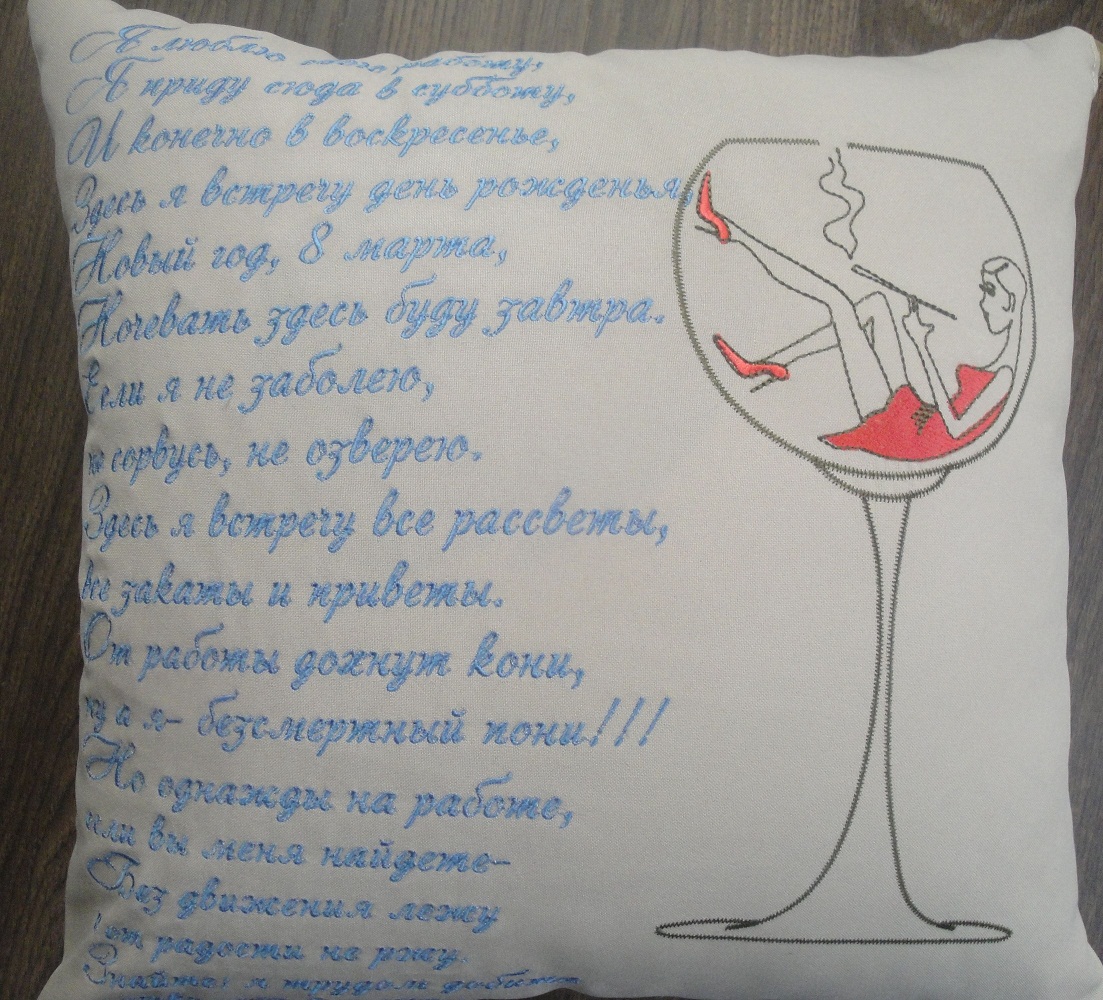 Я люблю свою работу,
Я приду сюда в субботу,
И конечно в воскресенье,
Здесь я встречу день рожденья,
Новый год, 8 марта,
Ночевать здесь буду завтра.
Если я не заболею,
не сорвусь, не озверею.
Здесь я встречу все рассветы,
все закаты и приветы.
От работы дохнут кони,
ну а я- безсмертный пони!!!
Но однажды на работе,
или вы меня найдете-
Без движения лежу
от радости не ржу.
Знайте, я трудом